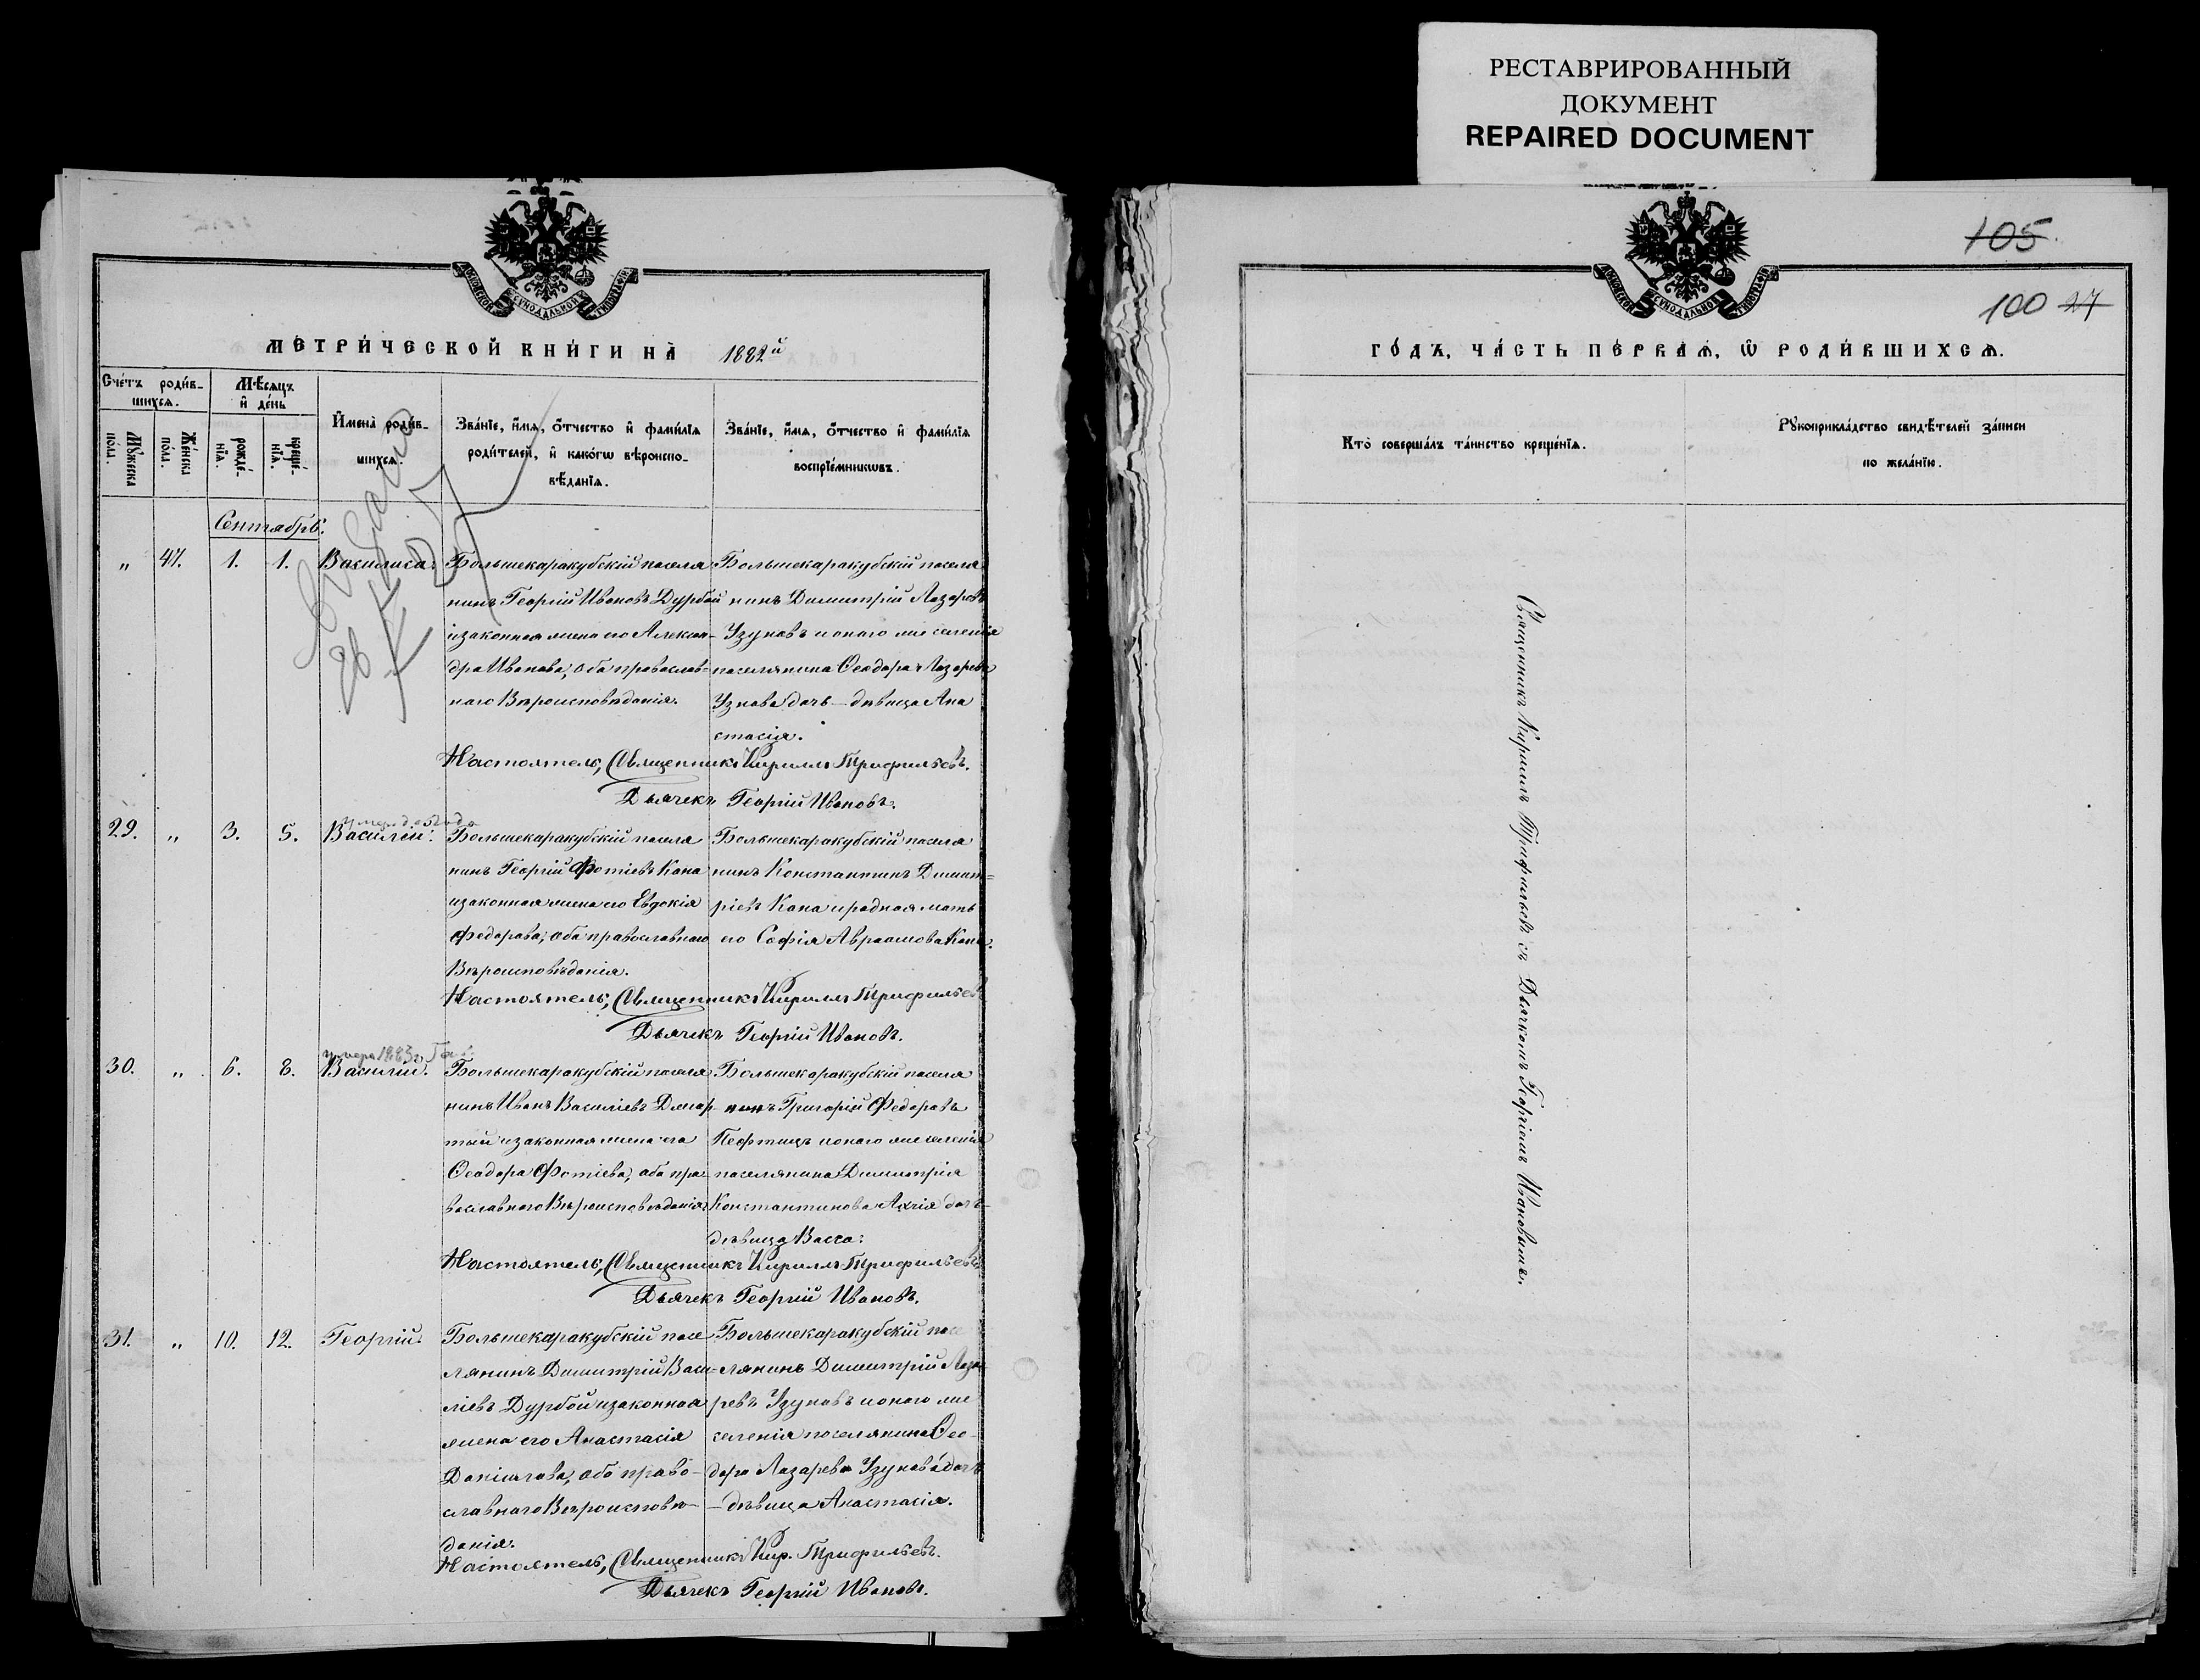 РЕСТАВРИРОВАННЫЙ
ДОКУМЕНТ
REPAIRED DOCUMENT
МЕТРИ́ЧЕСКОЙ КНИ́ГИ НА̀ 1882й
Сче́тъ роди́в-
шихсѧ.
Мѣ́сѧцъ
и҆ де́нь
Мꙋ́жеска
по́ла.
Же́нска
по́ла.
рожде́-
нїѧ.
креще́-
нїѧ.
И҆мена̀ роди́в-
шихсѧ.
Зва́нїе, и҆́мѧ, ѻ҆́тчество и҆ фами́лїѧ
роди́телей, и҆ како́гѡ вѣроиспо-
вѣ́данїѧ.
Зва́нїе, и҆́мѧ, ѻ҆́тчество и҆ фами́лїѧ
воспрїе́мникѡвъ.
Сентябрь.
„ 47. 1. 1. Василиса.
Большекаракубскій поселя
нинъ Георгій Ивановъ Дурбой
и законная жена его Алексан-
дра Иванова, оба православ-
наго Вѣроисповѣданія.
Большекаракубскій поселя
нинъ Димитрій Лазаревъ
Узуновъ и онаго же селенія
поселянина Ѳеодора Лазарева
Узнова дочь — дѣвица Ана
стасія.
Настоятель, Священникъ Кириллъ Трифильевъ.
Дьячекъ Георгій Ивановъ.
29. „ 3. 5. Василій.
Большекаракубскій поселя
нинъ Георгій Фотіевъ Кана
и законная жена его Евдокія
Федорова, оба православнаго
Вѣроисповѣданія.
Большекаракубскій поселя
нинъ Константинъ Димит=
ріевъ Кана и родная мать
его Софія Авраамова Кана.
Настоятель, Священникъ Кириллъ Трифильевъ
Дьячекъ Георгій Ивановъ.
умеръ 1883
30. „ 6. 8. Василій.
Большекаракубскій поселя
нинъ Иванъ Василіевъ
и законная жена его
Ѳеодора Фотіева, оба пра-
вославнаго Вѣроисповѣданія
Большекаракубскій поселя
нинъ Григорій Федоровъ
и онаго же селенія
поселянина Димитрія
Константинова дочь-
дѣвица Васса.
Настоятель, Священникъ Кириллъ Трифильевъ
Дьячекъ Георгій Ивановъ.
31. „ 10. 12. Георгій.
Большекаракубскій посе
лянинъ Димитрій Васи-
ліевъ Дурбой и законная
жена его Анастасія
Даніилова, оба право-
славнаго Вѣроисповѣ-
данія.
Большекаракубскій посе
лянинъ Димитрій Лаза
ревъ Узуновъ и онаго же
селенія поселянина Ѳео-
дора Лазарева Узунова дочь
— дѣвица Анастасія.
Настоятель, Священникъ Кир. Трифильевъ.
Дьячекъ Георгій Ивановъ.
105.
100 27
ГО́ДЪ, ЧА́СТЬ ПЕ́РВАѦ, Ѽ РОДИ́ВШИХСѦ.
Кто̀ соверша́лъ та́инство креще́нїѧ.
Рꙋкоприкла́дство свидѣ́телей за́писи
по жела́нїю.
Священникъ Кириллъ Трифильевъ съ Дьячкомъ Георгіемъ Ивановымъ.